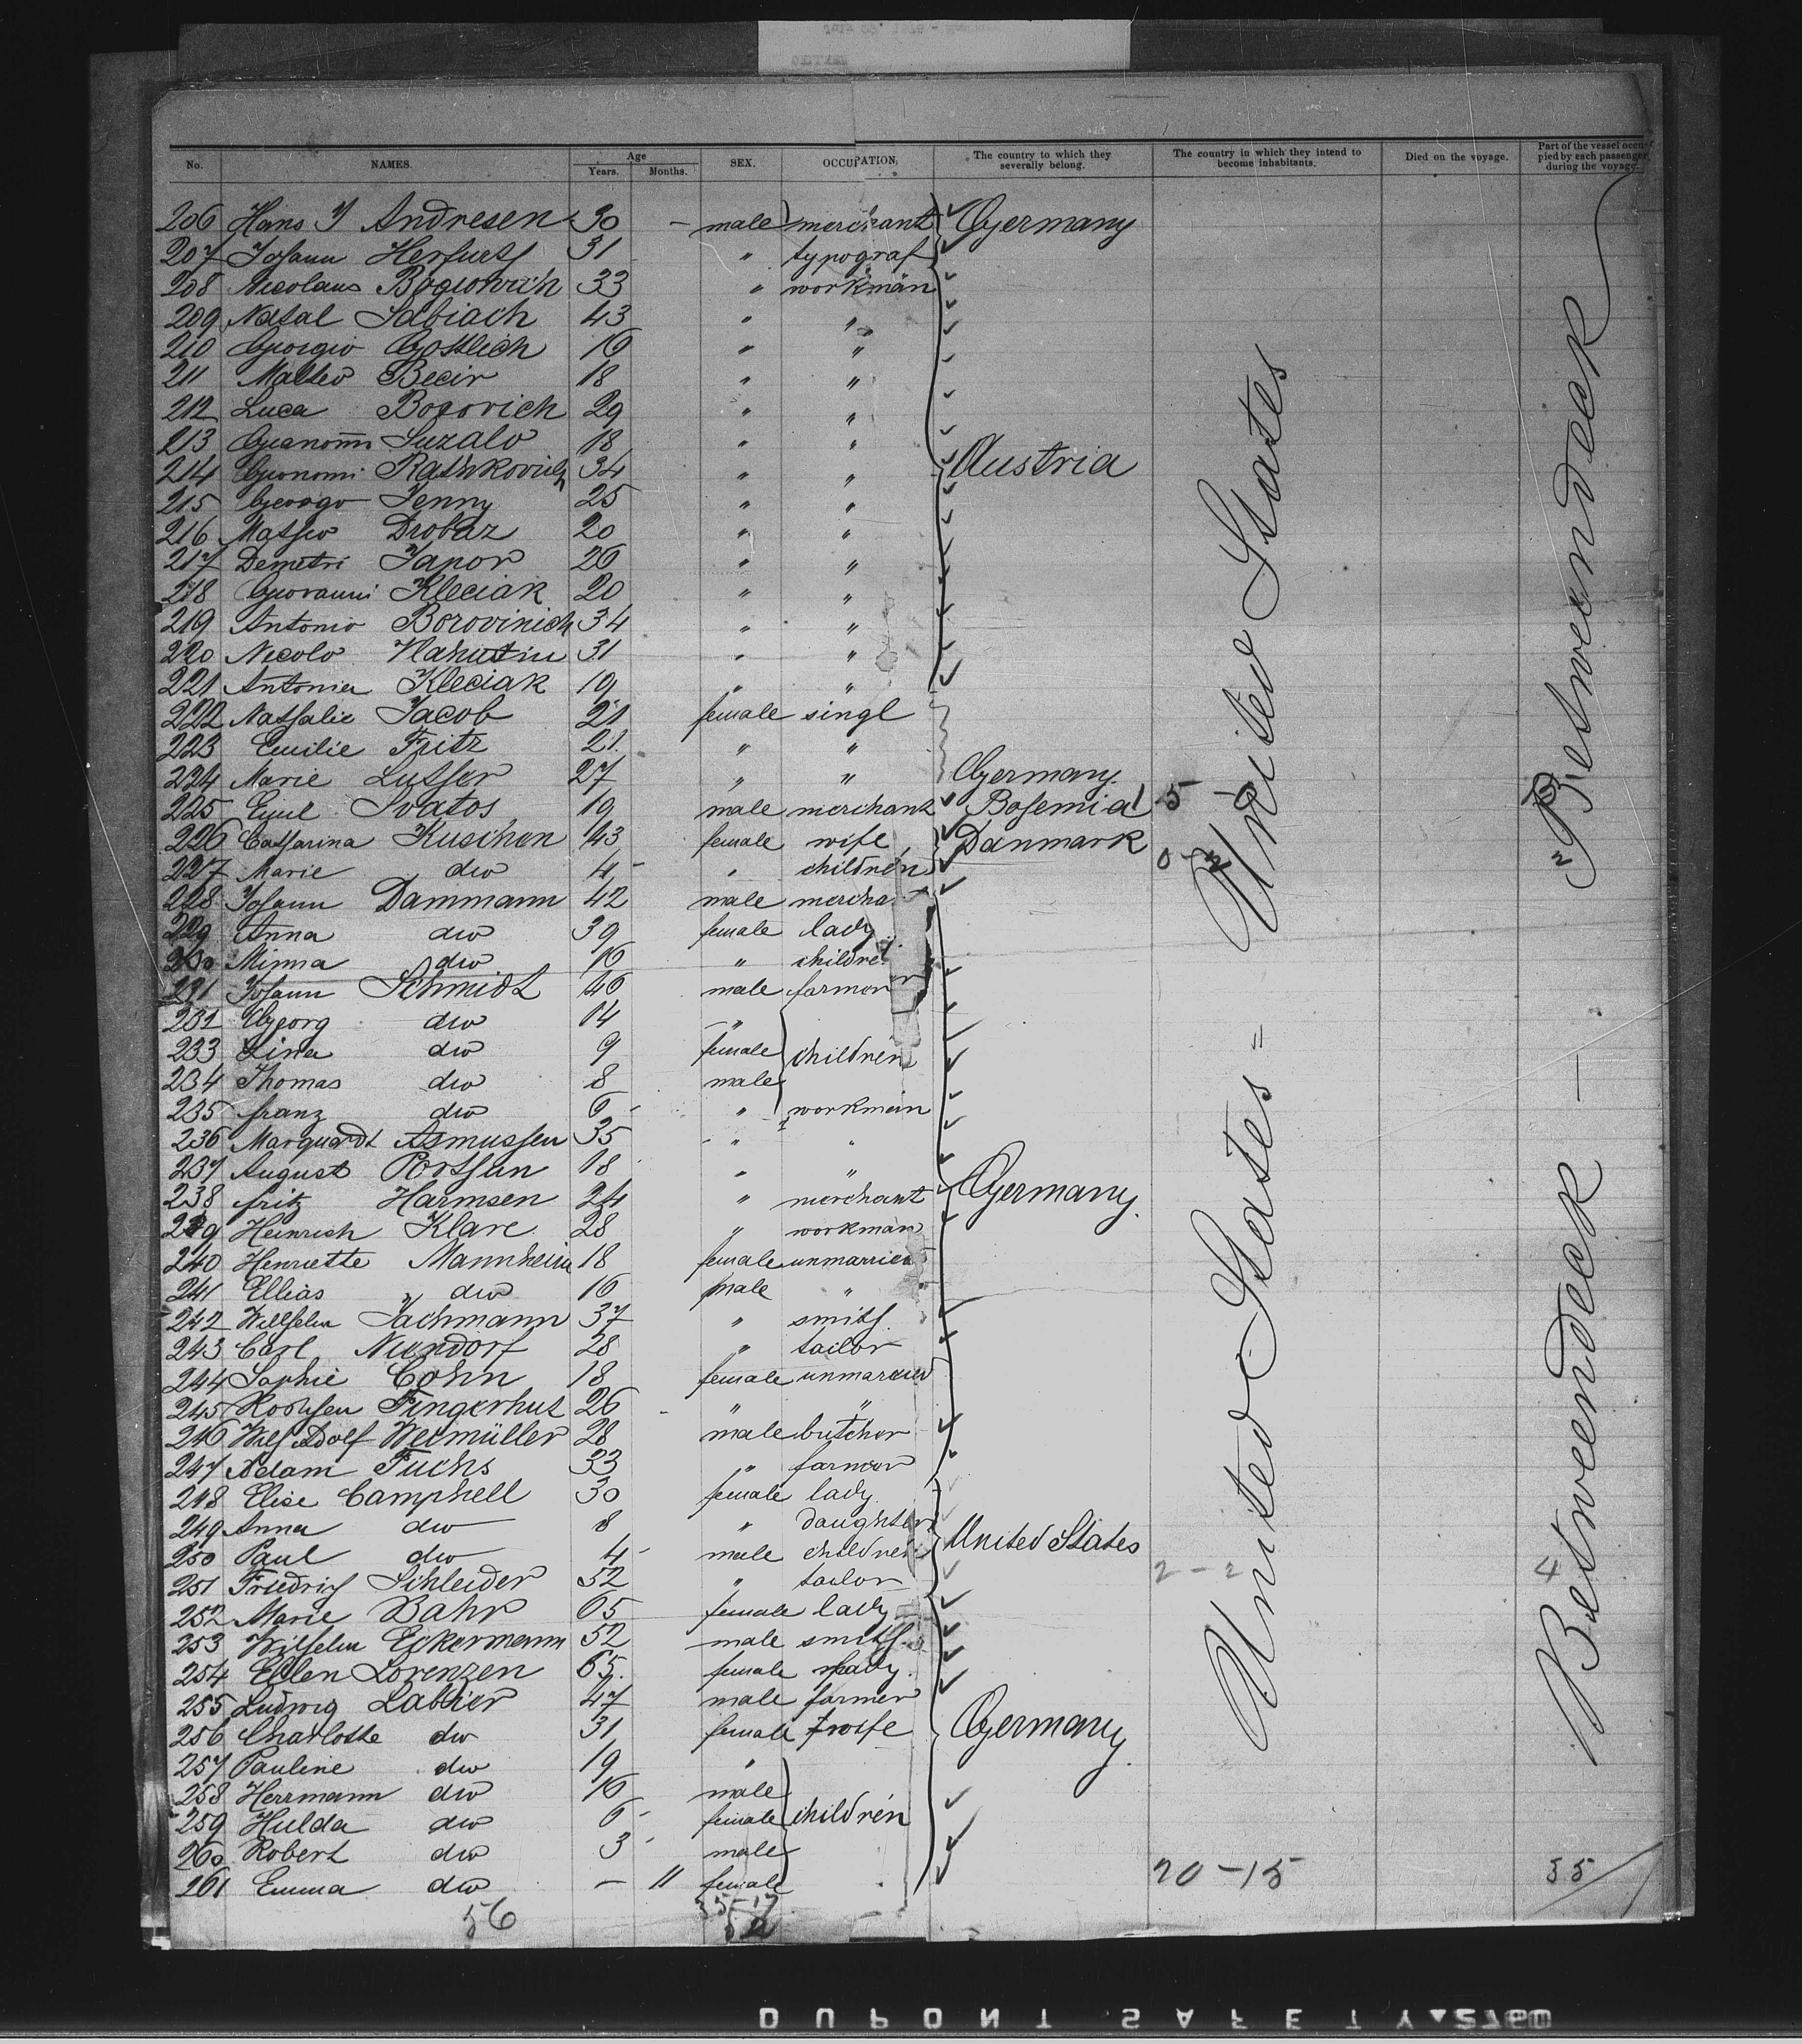 No. NAMES. Age Years. Months. SEX. OCCUPATION. The country to which they severally belong. The country in which they intend to become inhabitants. Died on the voyage. Part of the vessel occupied by each passenger during the voyage.
206 Hans J Andresen 30 - male merchant Germany
207 Johann Herfurth 31 " typograf
208 Nicolaus 33 " workman
209 Natal Sabiach 43 " "
210 Georgio Gottlich 16 " "
211 Matteo Becir 18 " "
212 Luca 29 " "
213 Luzalo 18 " "
214 Rathkovich 34 " " Austria
215 George Jenny 25 " "
216 Matheo Drobaz 20 " "
217 Demetri Japor 26 " "
218 Giovanni Kleciak 20 " "
219 Antonio Borovinich 34 " "
220 Nicolo 31 " "
221 Antonia Kleciak 19 " "
222 Nathalie Jacob 21 female singl
223 Emilie Fritz 21 " "
224 Marie Luther 27 " " Germany
225 Svatos 19 male merchant Bohemia 5
226 Catharina Kuschen 43 female wife Danmark
227 Marie do 4 " children
228 Johann Dammann 42 male mercha
229 Anna do 39 female lady
230 Minna do 16 " childre
231 Johann Schmidt 46 male farmer
232 Georg do 14 "
233 Lina do 9 female children
234 Thomas do 8 male
235 franz do 6 " workman
236 Marquardt Asmussen 35 "
237 August Porthun 18 " "
238 fritz Harmsen 24 " merchant Germany.
239 Heinrich Klare 28 " workman
240 Henriette Mannheim 18 female unmarried
241 Ellias " do 16 male "
242 Wilhelm Jachmann 37 " smith
243 Carl Niendorf 28 " tailor
244 Sophie Cohn 18 female unmarried
245 Fingerhut 26 " "
246 Wilh Adolf Weimüller 28 male butcher
247 Adam Fuchs 33 " farmer
248 Elise Campbell 30 female lady
249 Anna do 8 " daughter
250 Paul do 4 male children United States
251 Friedrich Schleider 52 " tailor 2-2 4
252 Marie Bahr 65 female lady
253 Wilhelm Eckermann 52 male smith
254 Ellen Lorenzen 65 female lady
255 Ludwig Labbier 47 male farmer
256 Charlotte do 31 female wife Germany.
257 Pauline do 19 "
258 Herrmann do 16 male
259 Hulda do 6 female children
260 Robert do 3 male
261 Emma do - 11 female
20-15 55
56 35-17
52
United States
United States =
Betweendeck
Betweendeck -
DUPONT SAFETY